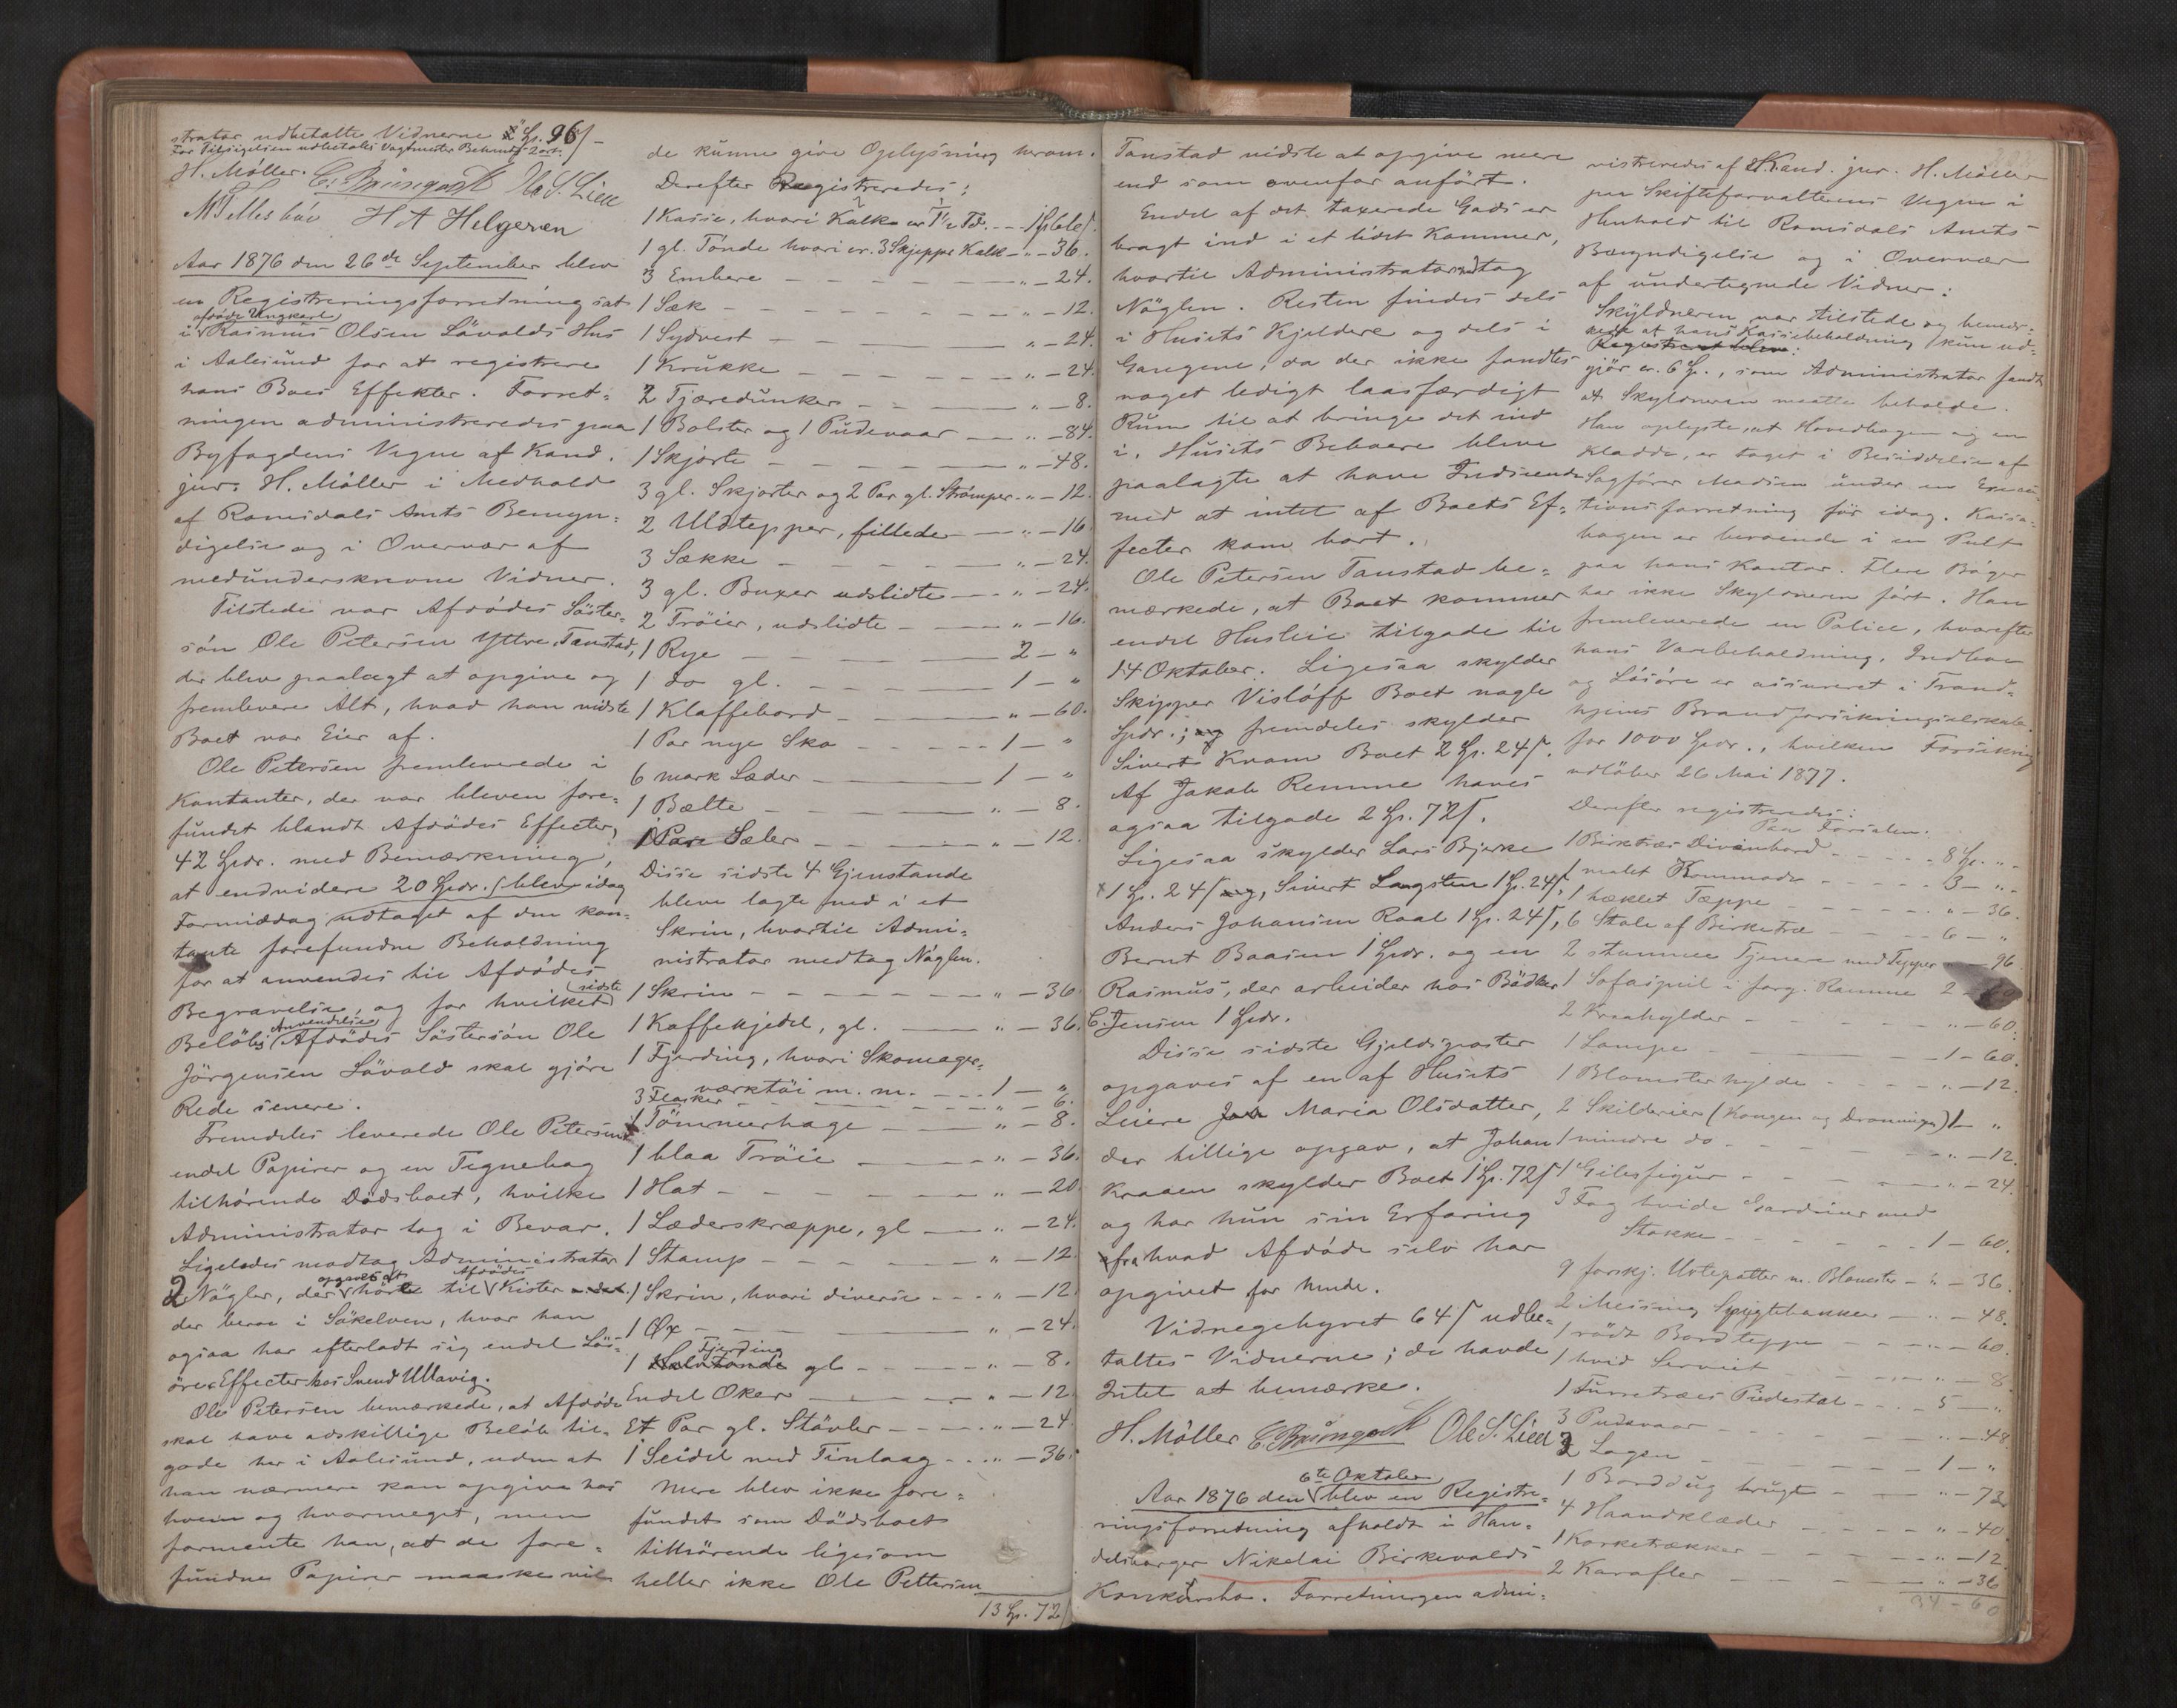 strator udbetalte Vidnerne 96
for Tilsigelsen udbetales Vagtmester 2 ort.
H. Möller. Ole S. Lied
H A Helgesen
Aar 1876 den 26de September blev
en Registreringsforretning sat
afdöde Ungkarl
i Rasmus Olsen Lövolds Hus
i Aalesund for at registrere
hans Boes Effekter. Forret-
ningen administreredes paa
Byfogdens Vegne af Kand.
jur. H. Möller i Medhold
af Romsdals Amts Bemyn-
digelse og i Overvær af
medunderskrevne Vidner.
Tilstede var Afdödes Söster-
sön Ole Petersen Yttre Tanstad,
der blev paalagt at opgive og
fremlevere Alt, hvad han vidste
Boet var Eier af.
Ole Petersen fremleverede i
Kontanter, der var bleven fore-
fundet blandt Afdödes Effecter,
42 Spdr. med Bemærkning,
at endvidere 20 Spdr. blev idag
Formiddag udtaget af den kon-
tante forefundne Beholdning
for at anvendes til Afdödes
Begravelse, og for hvilket sidste
Belöbs Anvendelse Afdödes Söstersön Ole
Jörgensen Lövold skal gjöre
Rede senere.
Fremdeles leverede Ole Petersen
endel Papirer og en Tegnebog
tilhörende Dödsboet, hvilke
Administrator tog i Bevar.
Ligeledes modtog Administrator
2 Nögler, der opgaves at höre til Afdödes Kister
der beroe i Sökelven, hvor han
ogsaa har efterladt sig endel Lös-
öre Effecter hos Svend Ullavig.
Ole Petersen bemærkede, at Afdöde
skal have adskillige Belöb til-
gode her i Aalesund, uden at
han nærmere kan opgive hos
hvem og hvormeget, men
formente han, at de fore-
fundne Papirer maaske vil-
de kunne give Oplysning herom.
Derefter Registreredes:
1 Kasse, hvori Kalk 1½ Td.
1 gl. Tönde hvori er 3 Skjepper Kalk - " - 36.
3 Embere - " - 24.
1 Sæk - " - 12.
1 Sydvest - " - 24.
1 Krukke - " - 24.
2 Tjæredunker - " - 8.
1 Bolster og 1 Pudevaar - " - 84.
1 Skjorte - " - 48.
3 gl. Skjorter og 2 Par gl. Strömper - " - 12.
2 Uldtepper, fillede - " - 16.
3 Sække - " - 24.
3 gl. Buxer udslidte - " - 24.
2 Tröier, udslidte - " - 16.
1 Rye - 2 - "
1 do gl. - 1 - "
1 Klaffebord - " - 60.
1 Par nye Sko - 1 - "
6 mark Læder - 1 - "
1 Bælte - " - 8.
1 Par Sæler - " - 12.
Disse sidste 4 Gjenstande
bleve lagte ned i et
Skrin, hvortil Admi-
nistrator modtog Nöglen.
1 Skrin - " - 36.
1 Kaffekjedel, gl. - " - 36.
1 Fjerding, hvori Skomager-
værktöi m. m. - 1 - "
3 Flasker - " - 6.
1 Tömmerhage - " - 8.
1 blaa Tröie - " - 36.
1 Hat - " - 20.
1 Læderskræppe, gl - " - 24.
1 Stamp - " - 12.
1 Skrin, hvori diverse - " - 12.
1 Øx - " - 24.
1 Fjerding gl - " - 8.
Endel Oker - " - 12
Et Par gl. Stövler - " - 24.
1 Seidel med Tinlaag - " - 36.
Mere blev ikke fore-
fundet som Dödsboet
tilhörende ligesom
heller ikke Ole Pettersen
13 Sp. 72
Tanstad vidste at opgive mere
end som ovenfor anfört.
Endel af det taxerede Gods er
bragt ind i et lidet Kammer,
hvortil Administrator modtog
Nöglen. Resten findes dels
i Husets Kjeldere og dels i
Gangene, da der ikke fandtes
noget ledigt laasfærdigt
Rum til at bringe det ind
i. Husets Beboere bleve
paalagte at have Indseende
med at intet af Boets Ef-
fecter kom bort.
Ole Petersen Tanstad be-
mærkede, at Boet kommer
endel Husleie tilgode til
14 Oktober. Ligesaa skylder
Skipper Vislöff Boet nogle
Spdr.; fremdeles skylder
Sivert Kvam Boet 2 Sp. 24 ß.
Af Jakob Remme haves
ogsaa tilgode 2 Sp. 72 ß.
Ligesaa skylder Lars Bjerke
1 Sp. 24 ß, Sivert Langsten 1 Sp. 24 ß,
Anders Johansen Raal 1 Sp. 24 ß,
Bernt Baasen 1 Spdr. og en
Rasmus, der arbeider hos Bödker
C. Jensen 1 Spdr.
Disse sidste Gjeldsposter
opgaves af en af Husets
Leiere Maria Olsdatter,
der tillige opgav, at Johan
Kraaen skylder Boet 1 Sp. 72 ß
og har hun sin Erfaring
fra hvad Afdöde selv har
opgivet for hende.
Vidnegebyret 64 ß udbe-
taltes Vidnerne; de havde
Intet at bemærke.
H. Möller Ole S. Lied
Aar 1876 den 6te Oktober blev en Registre-
ringsforretning afholdt i Han-
delsborger Nikolai Birkevolds
Konkursbo. Forretningen admi-
nistreredes af Kand. jur. H. Möller
paa Skifteforvalterens Vegne i
Henhold til Romsdals Amts
Bemyndigelse og i Overvær
af undertegnede Vidner:
Skyldneren var tilstede og bemær-
kede at hans Kassebeholdning kun ud-
gjör ca. 6 Sp., som Administrator fandt
at Skyldneren maatte beholde.
Han oplyste, at Hovedbogen og en
Kladde, er taget i Besiddelse af
Sagförer Madsen under en Execu-
tionsforretning för idag. Kasse-
bogen er beroende i en Pult
paa hans Kontor. Flere Böger
har ikke Skyldneren fört. Han
fremleverede en Police, hvorefter
hans Varebeholdning, Indboe
og Lösöre er assureret i Trond-
hjems Brandforsikringsselskab
for 1000 Spdr., hvilken Forsikring
udlöber 26 Mai 1877.
Derefter registreredes:
Paa Forsalen:
1 Birketræs Divanbord - 8 Sp. " -
1 malet Kommode - 3 - " -
1 hæklet Tæppe - " - 36.
6 Stole af Birketræ - 6 - "
2 stumme Tjenere med Tepper - 96
1 Sofaspeil i forg. Ramme 2 -
2 Kraahylder - " - 60.
1 Lampe - 1 - 60.
1 Blomsterhylde - " - 12.
2 Skilderier (Kongen og Dronningen) 1 - "
1 mindre do - " - 12.
1 Gibsfigur - " - 24.
3 Fag hvide Gardiner med
Stokke - 1 - 60.
9 forskj. Urtepotter m. Blomster - " - 36.
2 Messing Spyttebakker - " - 48.
1 rödt Bordteppe - " - 60.
1 hvid Serviet - " - 8
1 Furretræes Piedestal - 5 - "
3 Pudevaar - " - 48
2 Lagen - 1 - "
1 Borddug brugt - " - 72
4 Haandklæder - " - 40.
1 Korketrækker - " - 12
2 Karafler - " - 36
34 - 60